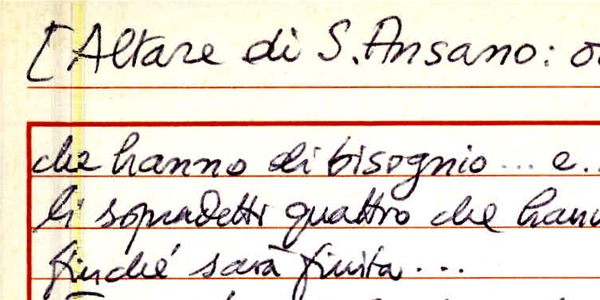 [Altare di S. Ansano: o
che hanno di bisognio ... e..
li sopradetti quattro che hann
finché sarà finita ...